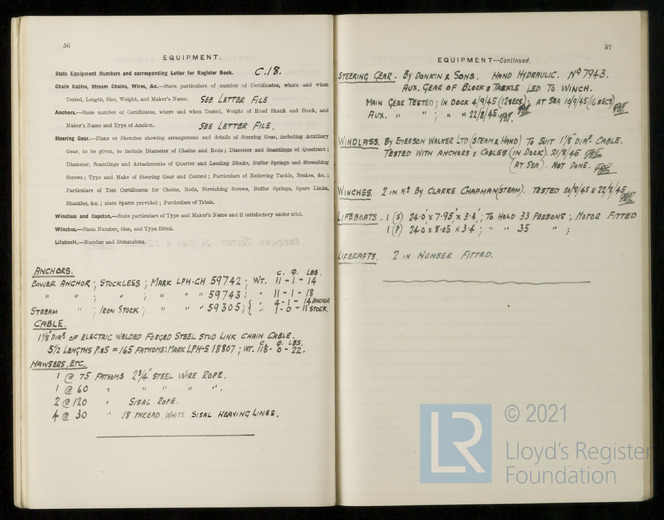 56
EQUIPMENT.
State Equipment Numbers and corresponding Letter for Register Book. C.18.
Chain Cables, Stream Chains, Wires, &c.—State particulars of number of Certificates, where and when
Tested, Length, Size, Weight, and Maker's Name. SEE LETTER FILE
Anchors.—State number of Certificates, where and when Tested, Weight of Head Shank and Stock, and
Maker's Name and Type of Anchor. SEE LETTER FILE.
Steering Gear.—Plans or Sketches showing arrangement and details of Steering Gear, including Auxiliary
Gear, to be given, to include Diameter of Chains and Rods; Diameter and Scantlings of Quadrant;
Diameter, Scantlings and Attachments of Quarter and Leading Blocks, Buffer Springs and Stretching
Screws; Type and Make of Steering Gear and Control; Particulars of Relieving Tackle, Brakes, &c.;
Particulars of Test Certificates for Chains, Rods, Stretching Screws, Buffer Springs, Spare Links,
Shackles, &c.; state Spares provided; Particulars of Trials.
Windlass and Capstan.—State particulars of Type and Maker's Name and if satisfactory under trial.
Winches.—State Number, Size, and Type fitted.
Lifeboats.—Number and Dimensions.
ANCHORS. C. Q. LBS.
BOWER ANCHOR; STOCKLESS; MARK LPH-CH 59742; WT. 11-1-14
" " ; " ; " " " 59743; " 11-1-18
STREAM " ; IRON STOCK; " " " 59305; { " 4-1-14 ANCHOR
" 1-0-11 STOCK.
CABLE.
1 1/8" DIAR OF ELECTRIC WELDED FORGED STEEL STUD LINK CHAIN CABLE.
C. Q. LBS.
5 1/2 LENGTHS P&S = 165 FATHOMS: MARK LPH-S 18807; WT. 118-0-22.
HAWSERS, ETC.
1 @ 75 FATHOMS 2 3/4" STEEL WIRE ROPE.
1 @ 60 " " " " ".
2 @ 120 " SISAL ROPE.
4 @ 30 " 18 THREAD WHITE SISAL HEAVING LINES.
57
EQUIPMENT—Continued.
STEERING GEAR. BY DONKIN & SONS. HAND HYDRAULIC. No 7943.
AUX. GEAR OF BLOCK & TACKLE LED TO WINCH.
MAIN GEAR TESTED; IN DOCK 4/9/45 (12 SECS); AT SEA 10/9/45
AUX. " " ; " " 22/8/45
WINDLASS. BY EMERSON WALKER LTD (STEAM & HAND) TO SUIT 1 1/8" DIAR. CABLE.
TESTED WITH ANCHORS & CABLES (IN DOCK). 31/8/45
(AT SEA). NOT DONE.
WINCHES. 2 IN No BY CLARKE CHAPMAN (STEAM). TESTED 20/8/45 & 22/8/45
LIFEBOATS. 1 (S) 24.0 x 7.95 x 3.4; TO HOLD 33 PERSONS; MOTOR FITTED
1 (P) 24.0 x 8.05 x 3.4; " " 35 " ;
LIFERAFTS. 2 IN NUMBER FITTED.
LR
© 2021
Lloyd's Register
Foundation